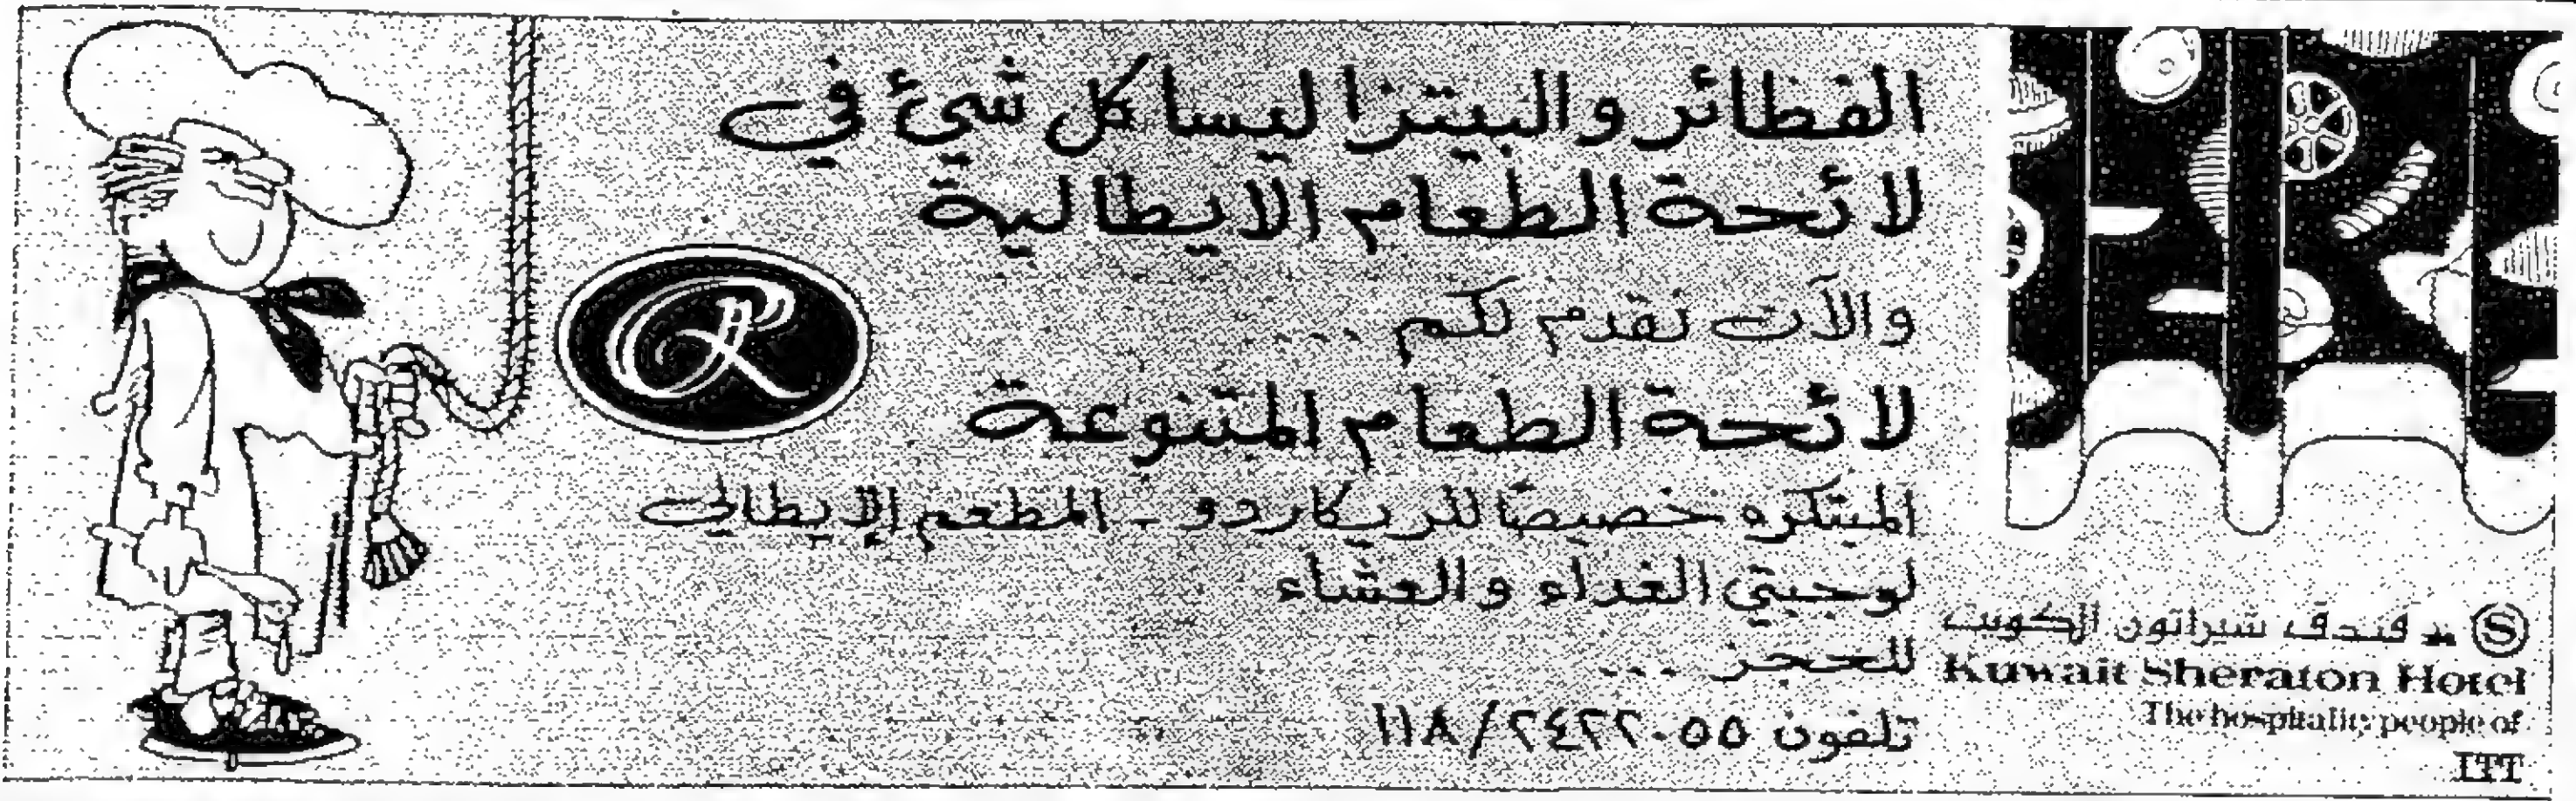 الفطائر والبيتزا ليسا كل شئ في
لائحة الطعام الايطالية
والآن نقدم لكم ...
لائحة الطعام المتنوعة
المبتكره خصيصًا للريكاردو - المطعم الإيطالي
لوجبتي الغداء والعشاء
للحجز ...
تلفون ٢٤٢٢٠٥٥/١١٨
R
S فندق شيراتون الكويت
Kuwait Sheraton Hotel
The hospitality people of
ITT